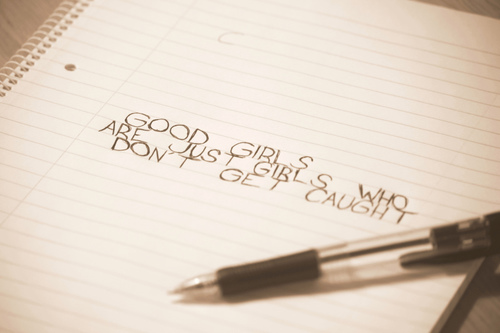 GOOD GIRLS
ARE JUST GIRLS WHO
DON'T GET CAUGHT